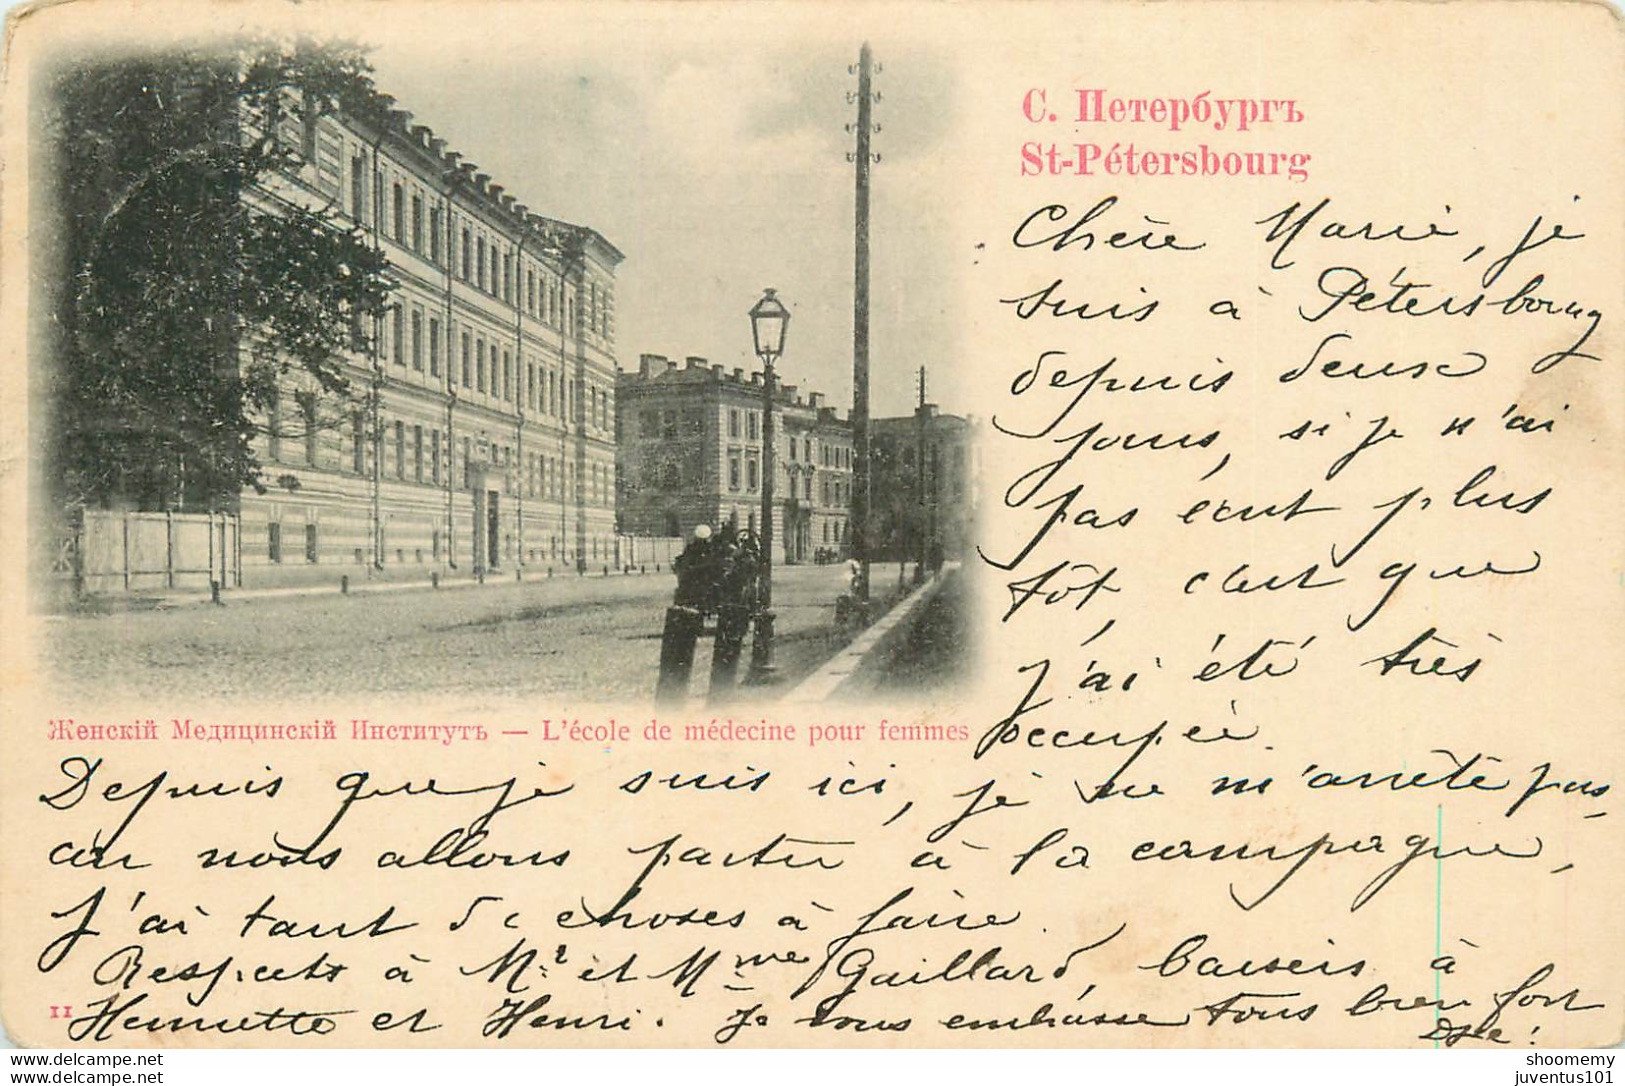 С. Петербургъ
St-Pétersbourg
Chère Marie, je
suis à Pétersbourg
depuis deux
jours, si je n'ai
pas écrit plus
tôt, c'est que
j'ai été très
occupée.
Женскій Медицинскій Институтъ — L'école de médecine pour femmes
Depuis que je suis ici, je ne m'arrête pas,
car nous allons partir à la campagne,
j'ai tant de choses à faire.
Respects à Mr et Mme Gaillard, baisers à
11 Henriette et Henri. Je vous embrasse tous bien fort
delcampe.net
juventus101.delcampe.net
shoomemy
juventus101